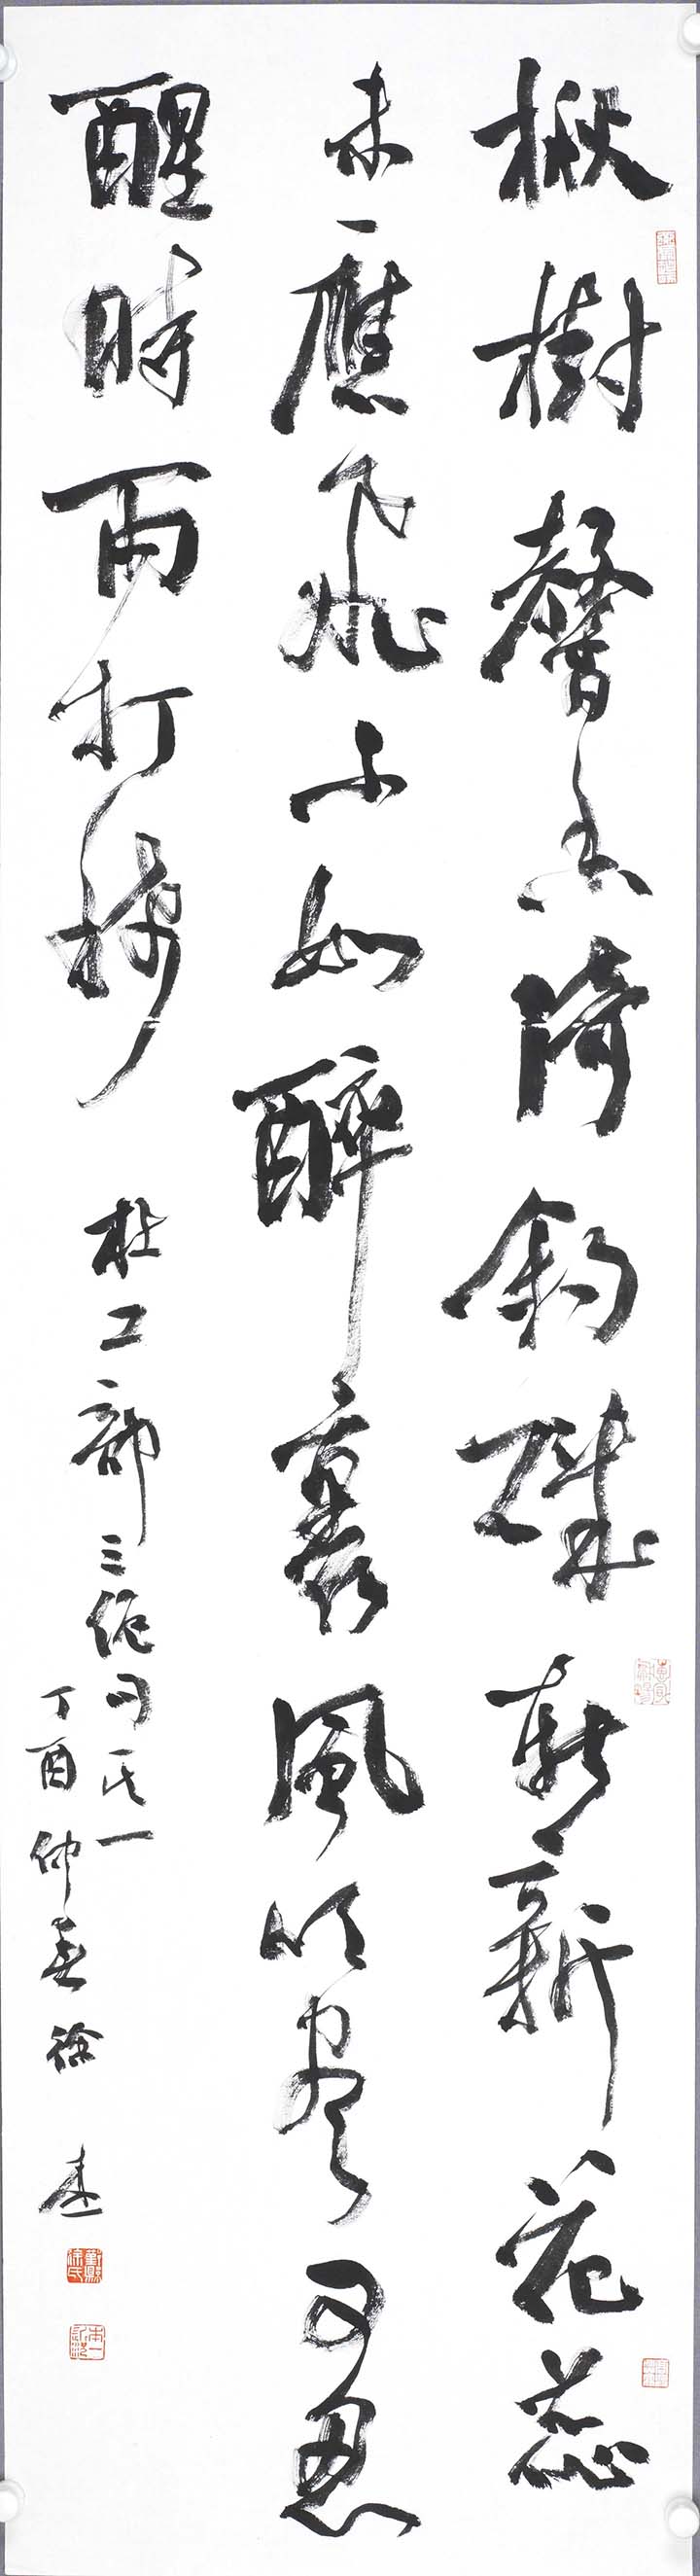 楸樹馨香倚釣磯斬新花蕊
未應飛不如醉裏風吹盡可忍
醒時雨打稀
杜工部三絕句其一
丁酉仲春徐